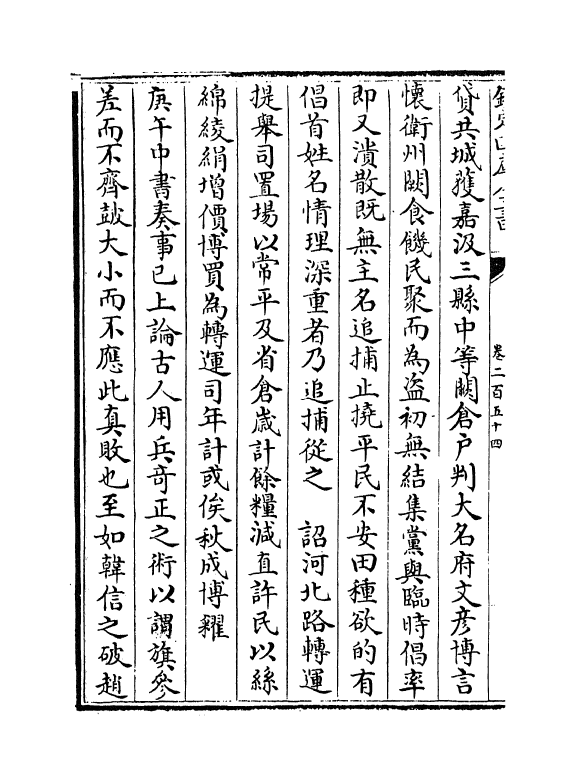 欽定四庫全書
卷二百五十四
貸共城獲嘉汲三縣中等闕倉户判大名府文彦博言
懷衛州闕食饑民聚而為盜初無結集黨與臨時倡率
即又潰散既無主名追捕止撓平民不安田種欲的有
倡首姓名情理深重者乃追捕從之　詔河北路轉運
提舉司置場以常平及省倉歲計餘糧減直許民以絲
綿綾絹增價博買為轉運司年計或俟秋成博糴
庚午中書奏事已上論古人用兵竒正之術以謂旗參
差而不齊鼓大小而不應此真敗也至如韓信之破趙